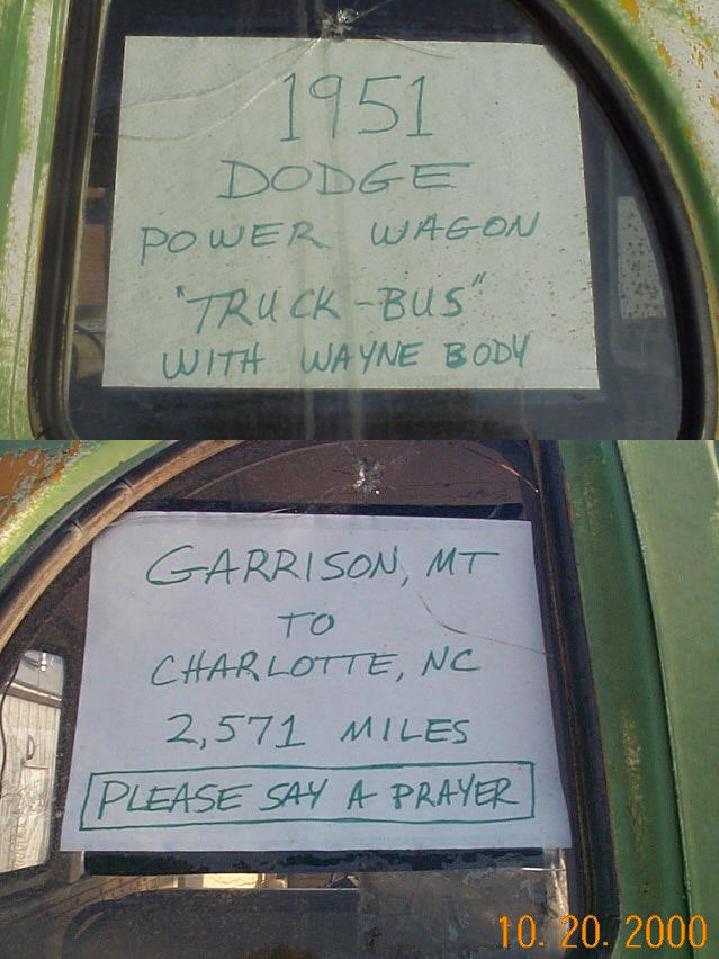 1951
DODGE
POWER WAGON
"TRUCK-BUS"
WITH WAYNE BODY
GARRISON, MT
TO
CHARLOTTE, NC
2,571 MILES
PLEASE SAY A PRAYER
10. 20. 2000